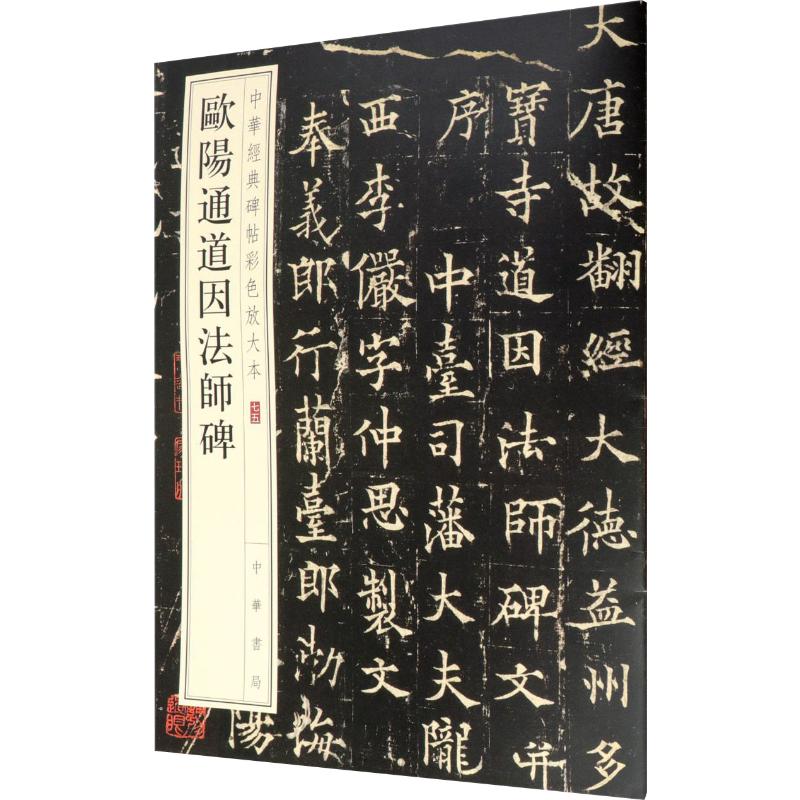 歐陽通道因法師碑
中華經典碑帖彩色放大本
七五
中華書局
大唐故翻經大德益州多
寶寺道因法師碑文并
序 中臺司藩大夫隴
西李儼字仲思製文
奉義郎行蘭臺郎渤海
陽